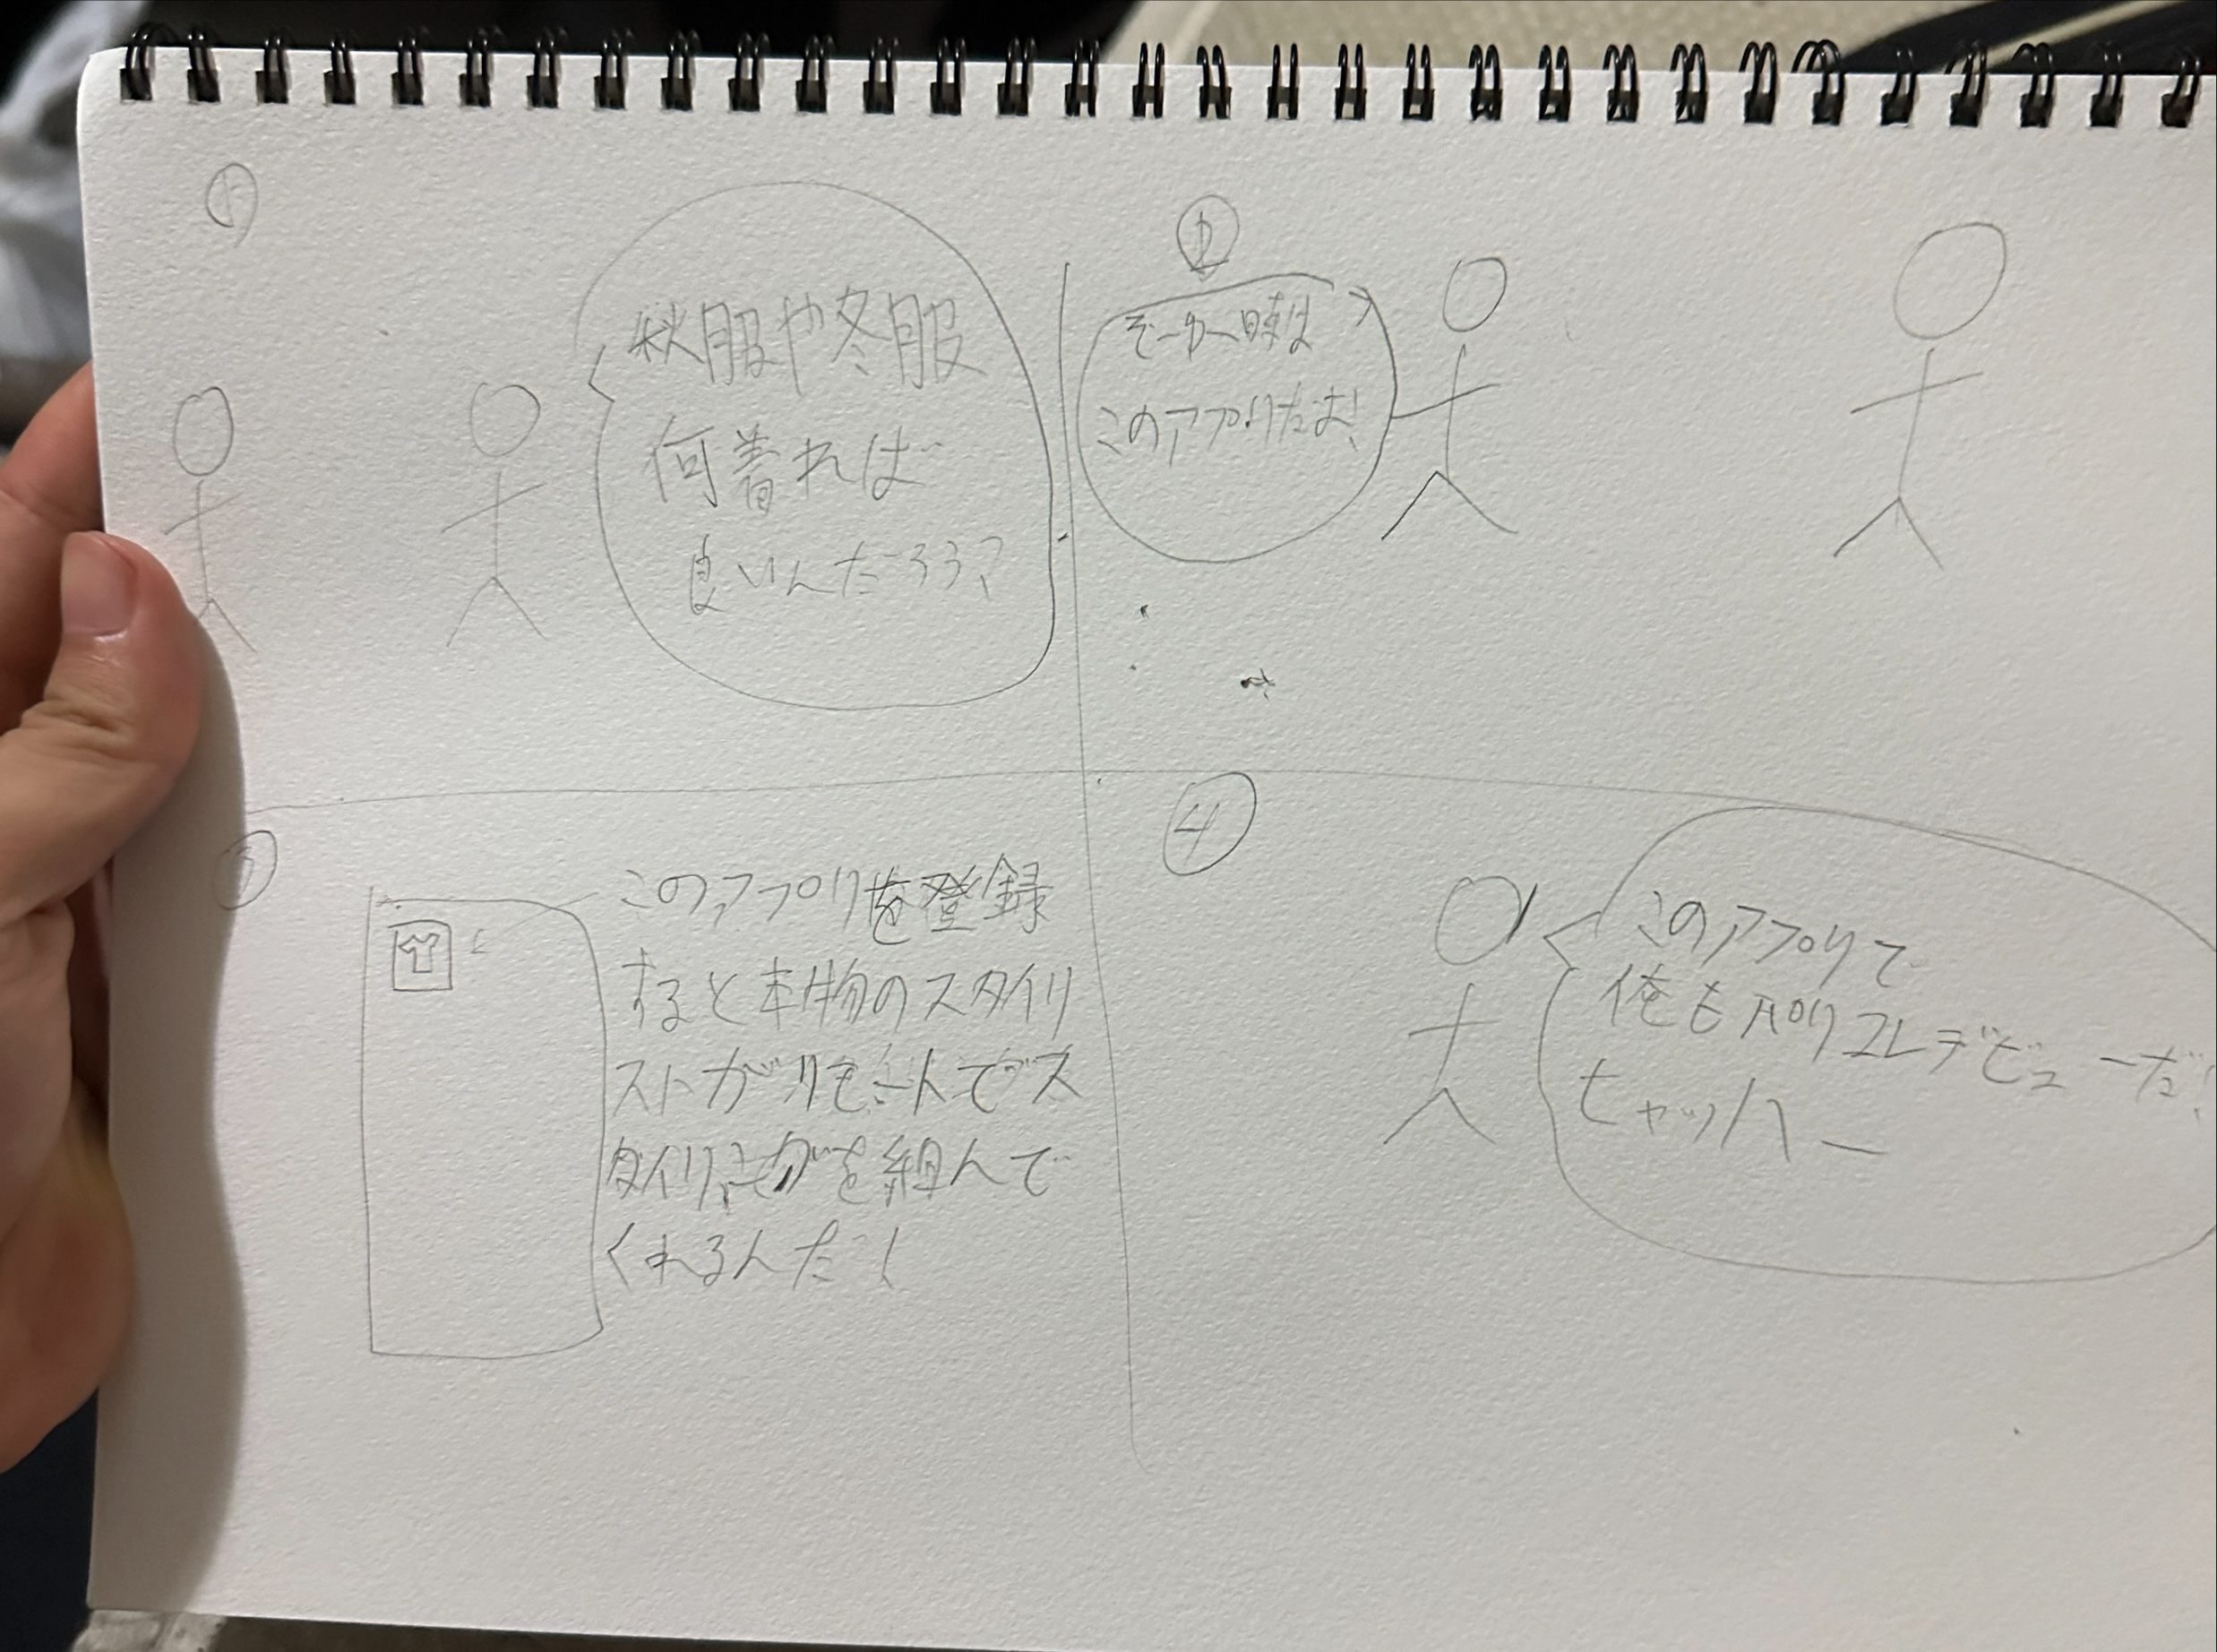 ①
秋服や冬服
何着れば
良いんだろう?
②
そーゆー時は
このアプリだよ!
③
このアプリを登録
すると本物のスタイリ
ストがリモートでス
タイリングを組んで
くれるんだ!
④
このアプリで
俺もパリコレデビューだ!
ヒャッハー